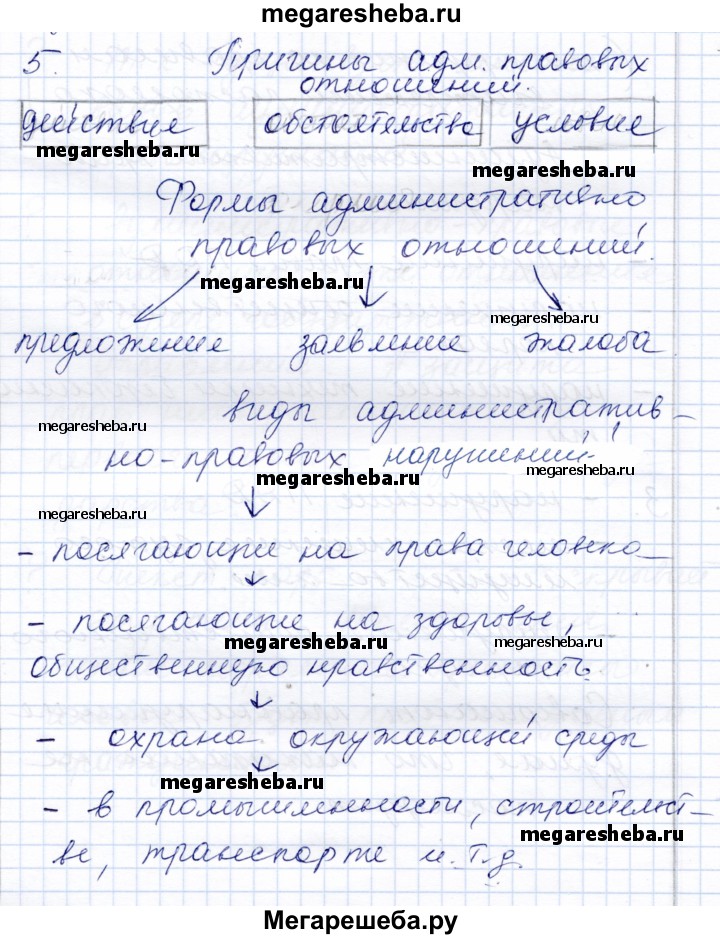 megaresheba.ru
5. Причины адм. правовых
отношений.
действие обстоятельства условие
megaresheba.ru
megaresheba.ru
Формы административно
правовых отношений.
megaresheba.ru
megaresheba.ru
предложение заявление жалоба
виды административ-
megaresheba.ru
но-правовых нарушений
megaresheba.ru
megaresheba.ru
megaresheba.ru
- посягающие на права человека
- посягающие на здоровье,
megaresheba.ru
megaresheba.ru
общественную нравственность
- охрана окружающей среды
megaresheba.ru
- в промышленности, строительст-
megaresheba.ru
ве, транспорте и.т.д
Мегарешеба.ру